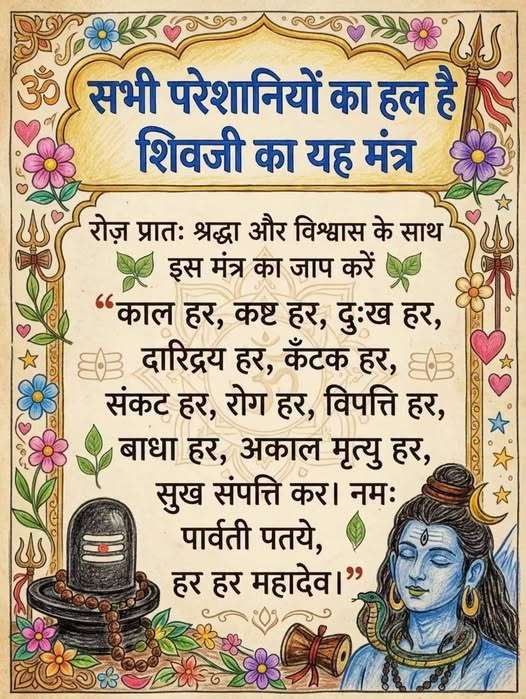 सभी परेशानियों का हल है
शिवजी का यह मंत्र
रोज़ प्रातः श्रद्धा और विश्वास के साथ
इस मंत्र का जाप करें
“काल हर, कष्ट हर, दुःख हर,
दारिद्रय हर, कँटक हर,
संकट हर, रोग हर, विपत्ति हर,
बाधा हर, अकाल मृत्यु हर,
सुख संपत्ति कर। नमः
पार्वती पतये,
हर हर महादेव।”
ॐ
ॐ